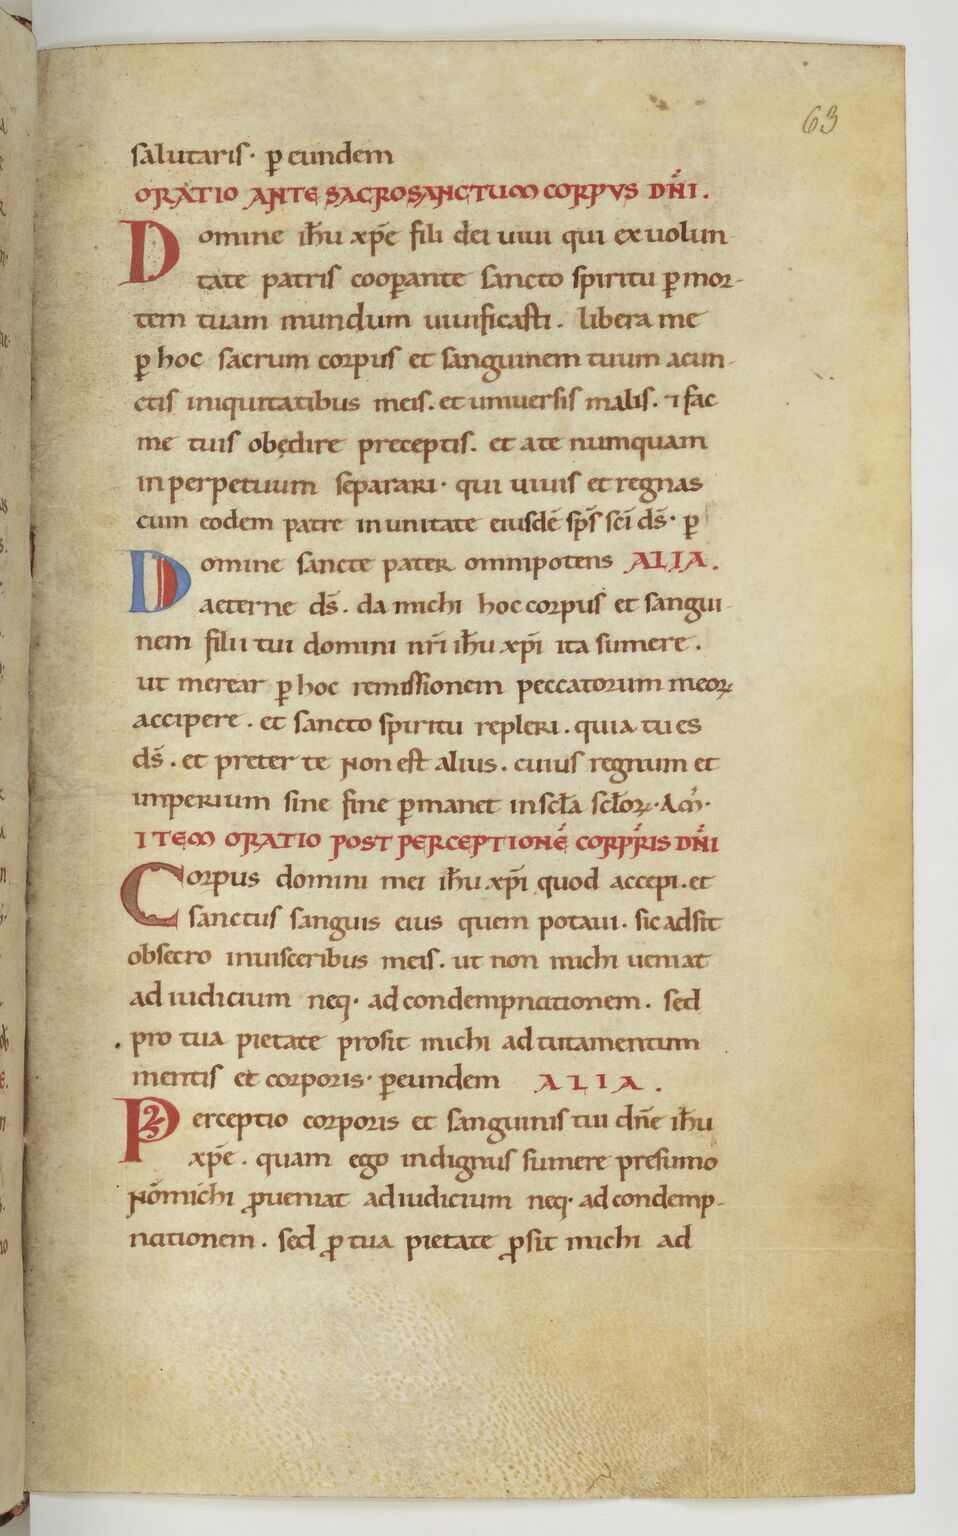 63
salutaris· ꝑ eundem
ORATIO ANTE SACROSANCTUM CORPVS DN̄I.
Domine ih̄u xp̄e fili dei uiui qui ex uolun
tate patris cooꝑante sancto spiritu ꝑ mor-
tem tuam mundum uiuificasti. libera me
ꝑ hoc sacrum corpus et sanguinem tuum a cun-
ctis iniquitatibus meis. et uniuersis malis. ⁊ fac
me tuis obędire preceptis. et a te numquam
in perpetuum separari· qui uiuis et regnas
cum eodem patre in unitate eiusdē sp̄s sc̄i ds̄· ꝑ
Domine sancte pater omnipotens ALIA.
aeterne ds̄. da michi hoc corpus et sangui-
nem filii tui domini nr̄i ih̄u xp̄i ita sumere.
ut merear ꝑ hoc remissionem peccatorum meoꝝ
accipere. et sancto spiritu repleri. quia tu es
ds̄. et preter te non est alius. cuius regnum et
imperium sine fine ꝑmanet in scl̄a scl̄oꝝ· Am̄·
ITEM ORATIO POST PERCEPTIONĒ CORPR̄IS DN̄I
Corpus domini mei ih̄u xp̄i quod accepi. et
sanctus sanguis eius quem potaui· sic adsit
obsecro in uisceribus meis. ut non michi ueniat
ad iudicium neq· ad condempnationem. sed
pro tua pietate prosit michi ad tutamentum
mentis et corporis· ꝑ eundem ALIA.
Perceptio corporis et sanguinis tui dn̄e ih̄u
xp̄e. quam ego indignus sumere presumo
nō michi ꝓueniat ad iudicium neq· ad condemp-
nationem. sed ꝓ tua pietate ꝓsit michi ad